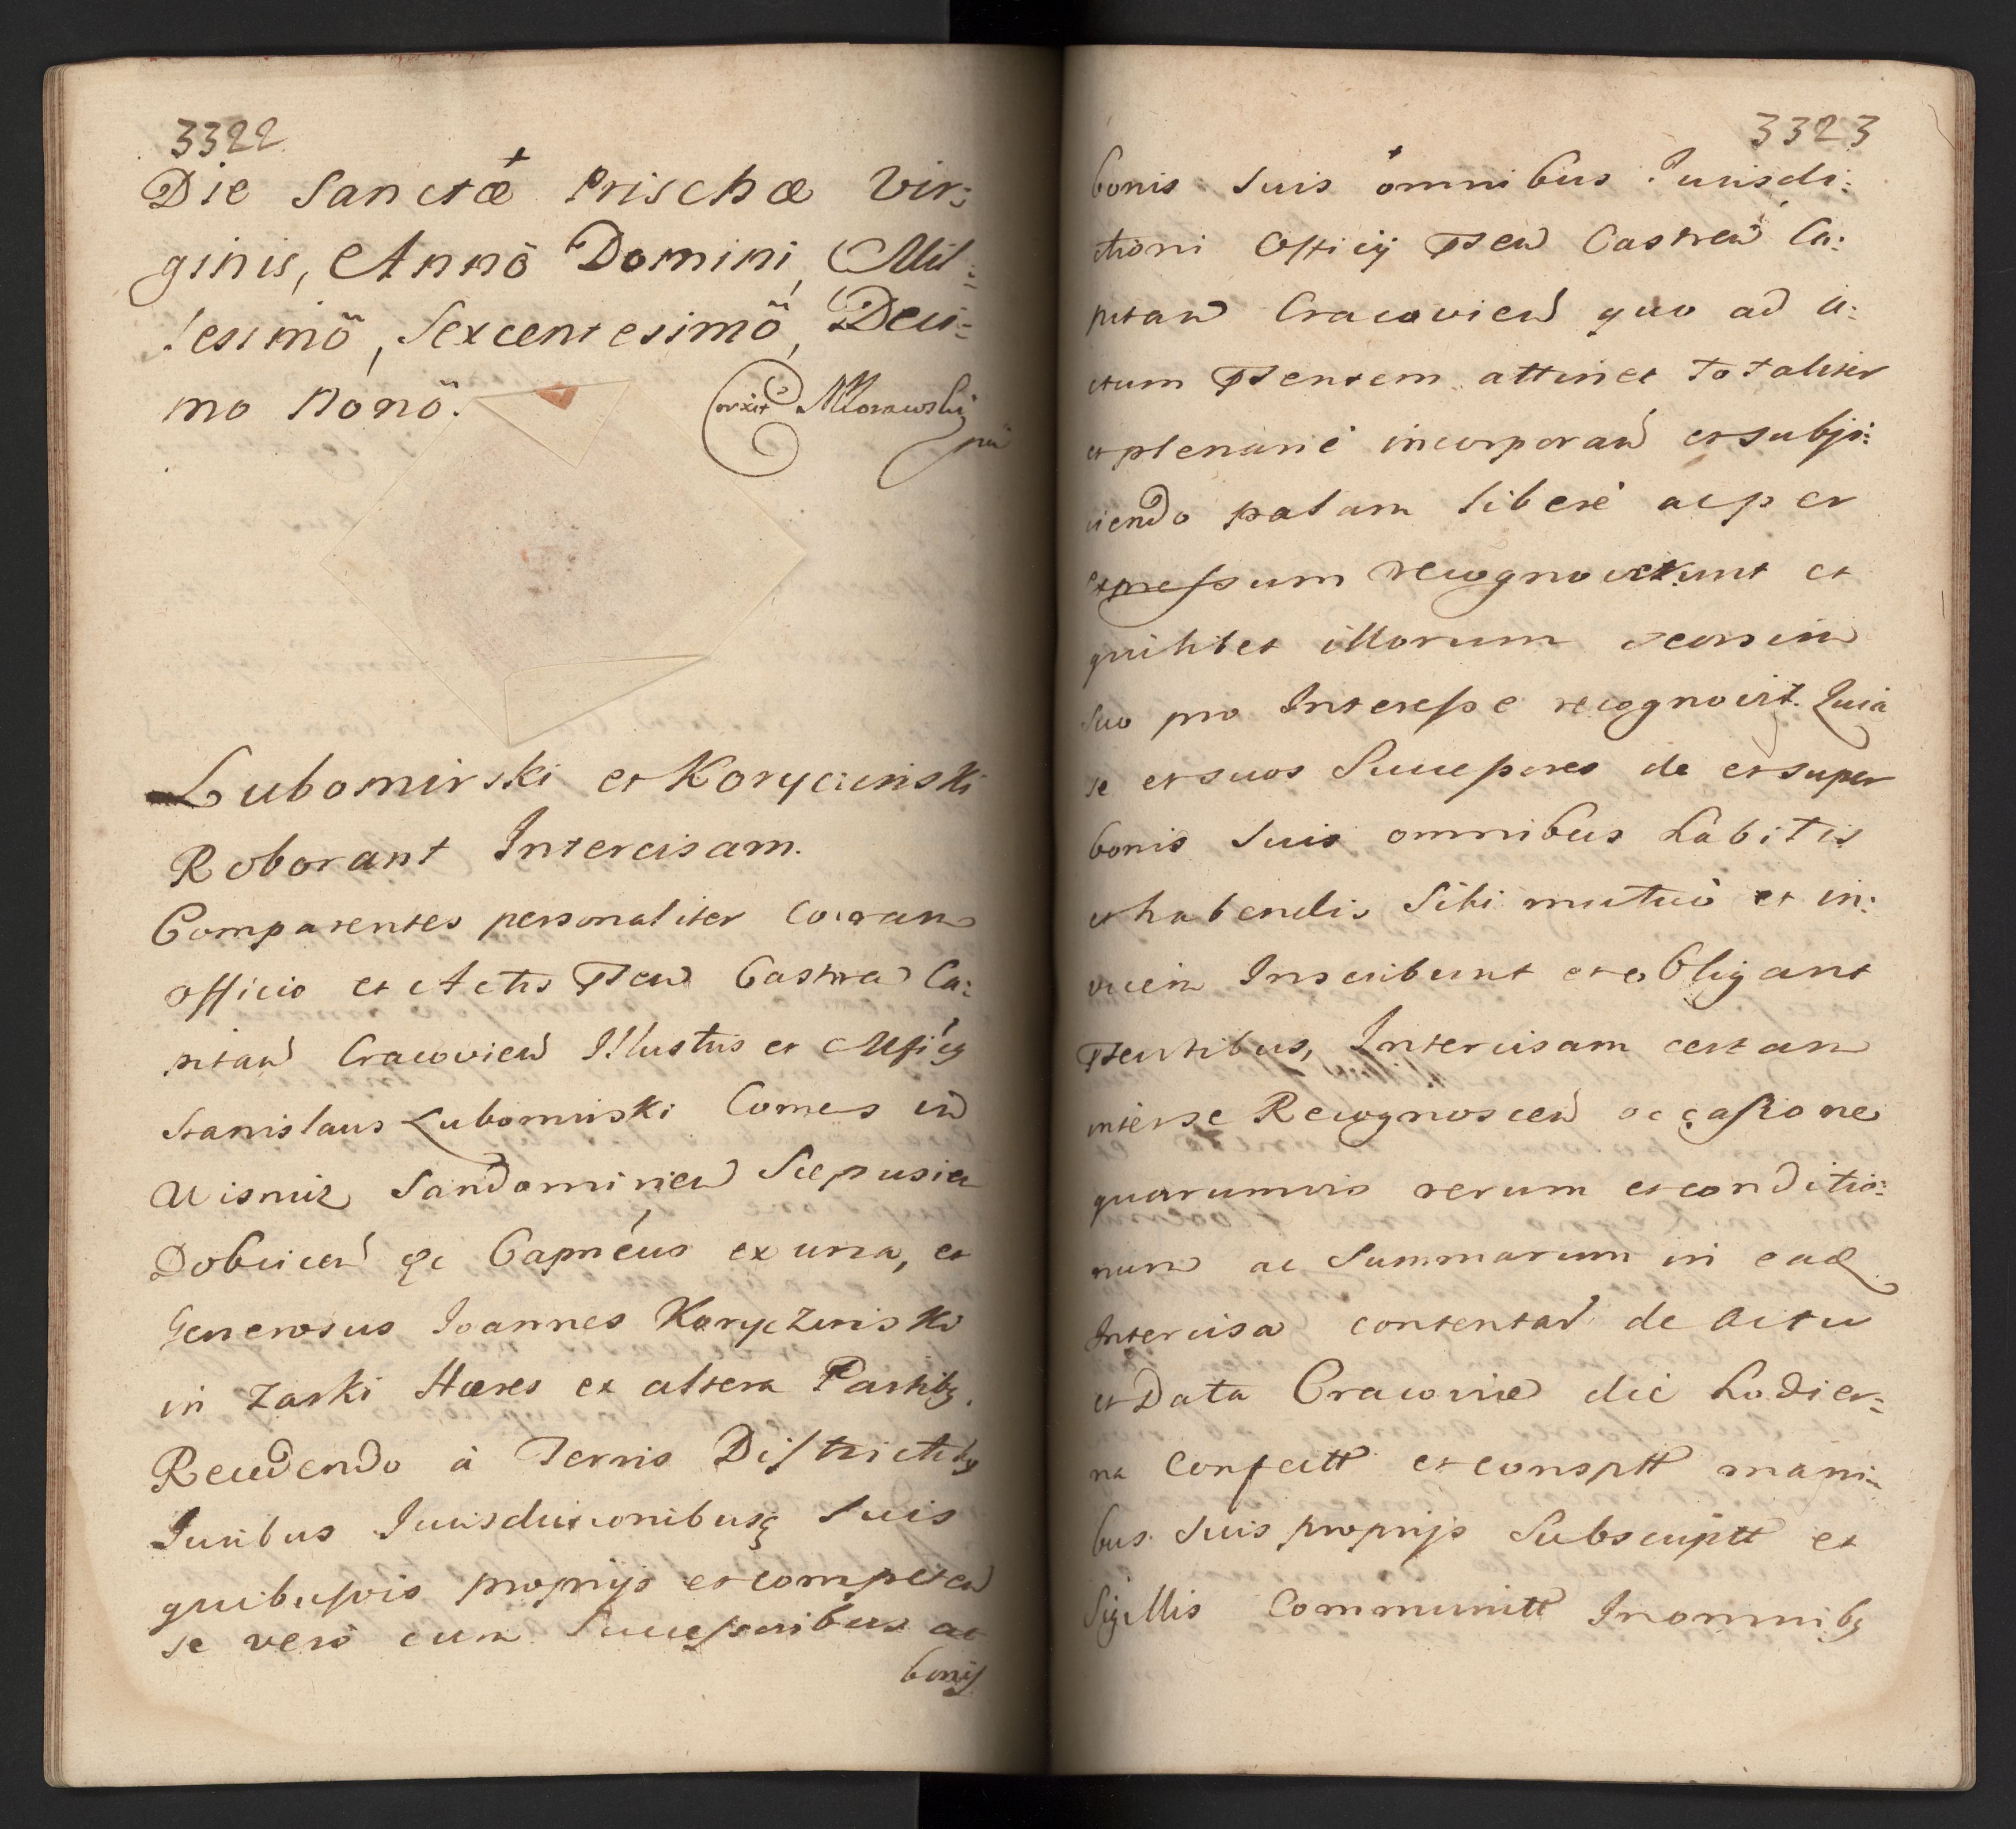 3322
Die Sanctæ Prischæ Vir:
ginis, Annõ Domini, Mil:
lesimõ, Sexcentesimõ, Deci:
mo Nonõ.
Corxit Morawski
mp
Lubomirski et Koryciński
Roborant Intercisam.
Comparentes personaliter Coram
Officio et Actis Psen Castren Ca:
pitan Cracovien Illustris et Mficy
Stanislaus Lubomirski Comes in
Wisnicz Sandomirien Scepusien
Dobcicen &c Capneus ex una, et
Generosus Ioannes Koryczinski
in Zarki Hæres ex altera Partibq.
Recedendo à Terris Districtibq
Iuribus Iurisdicionibusq suis
quibusvis proprijs et competen
se verò cum Successoribus ac
bonis
3323
bonis suis omnibus Iurisdi:
ctioni Officij Psen Castren Ca:
pitan Cracovien quo ad a:
ctum Psentem attinet totaliter
et plenariè incorporan et subji:
ciendo palam liberè ac per
expressum recognoverunt et
quilibet illorum seorsim
suo pro Interesse recognovit. Quia
se et suos Successores de et super
bonis suis omnibus habitis
et habendis sibi mutuò et in:
vicem Inscribunt et obligant
Psentibus, Intercisam certam
inter se Recognoscen occasione
quarumvis rerum et conditio:
num ac Summarum in ead
Intercisa contentar de actu
et Data Cracoviæ die hodier:
na confectt et consptt mani:
bus suis proprijs Subscriptt et
Sigillis Communitt In omnibq